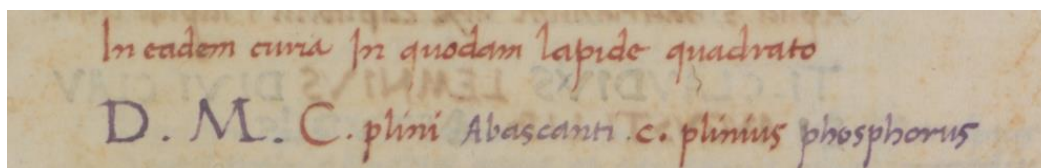 In eadem curia In quodam lapide quadrato
D . M . C . plini Abascanti . c . plinius phosphorus